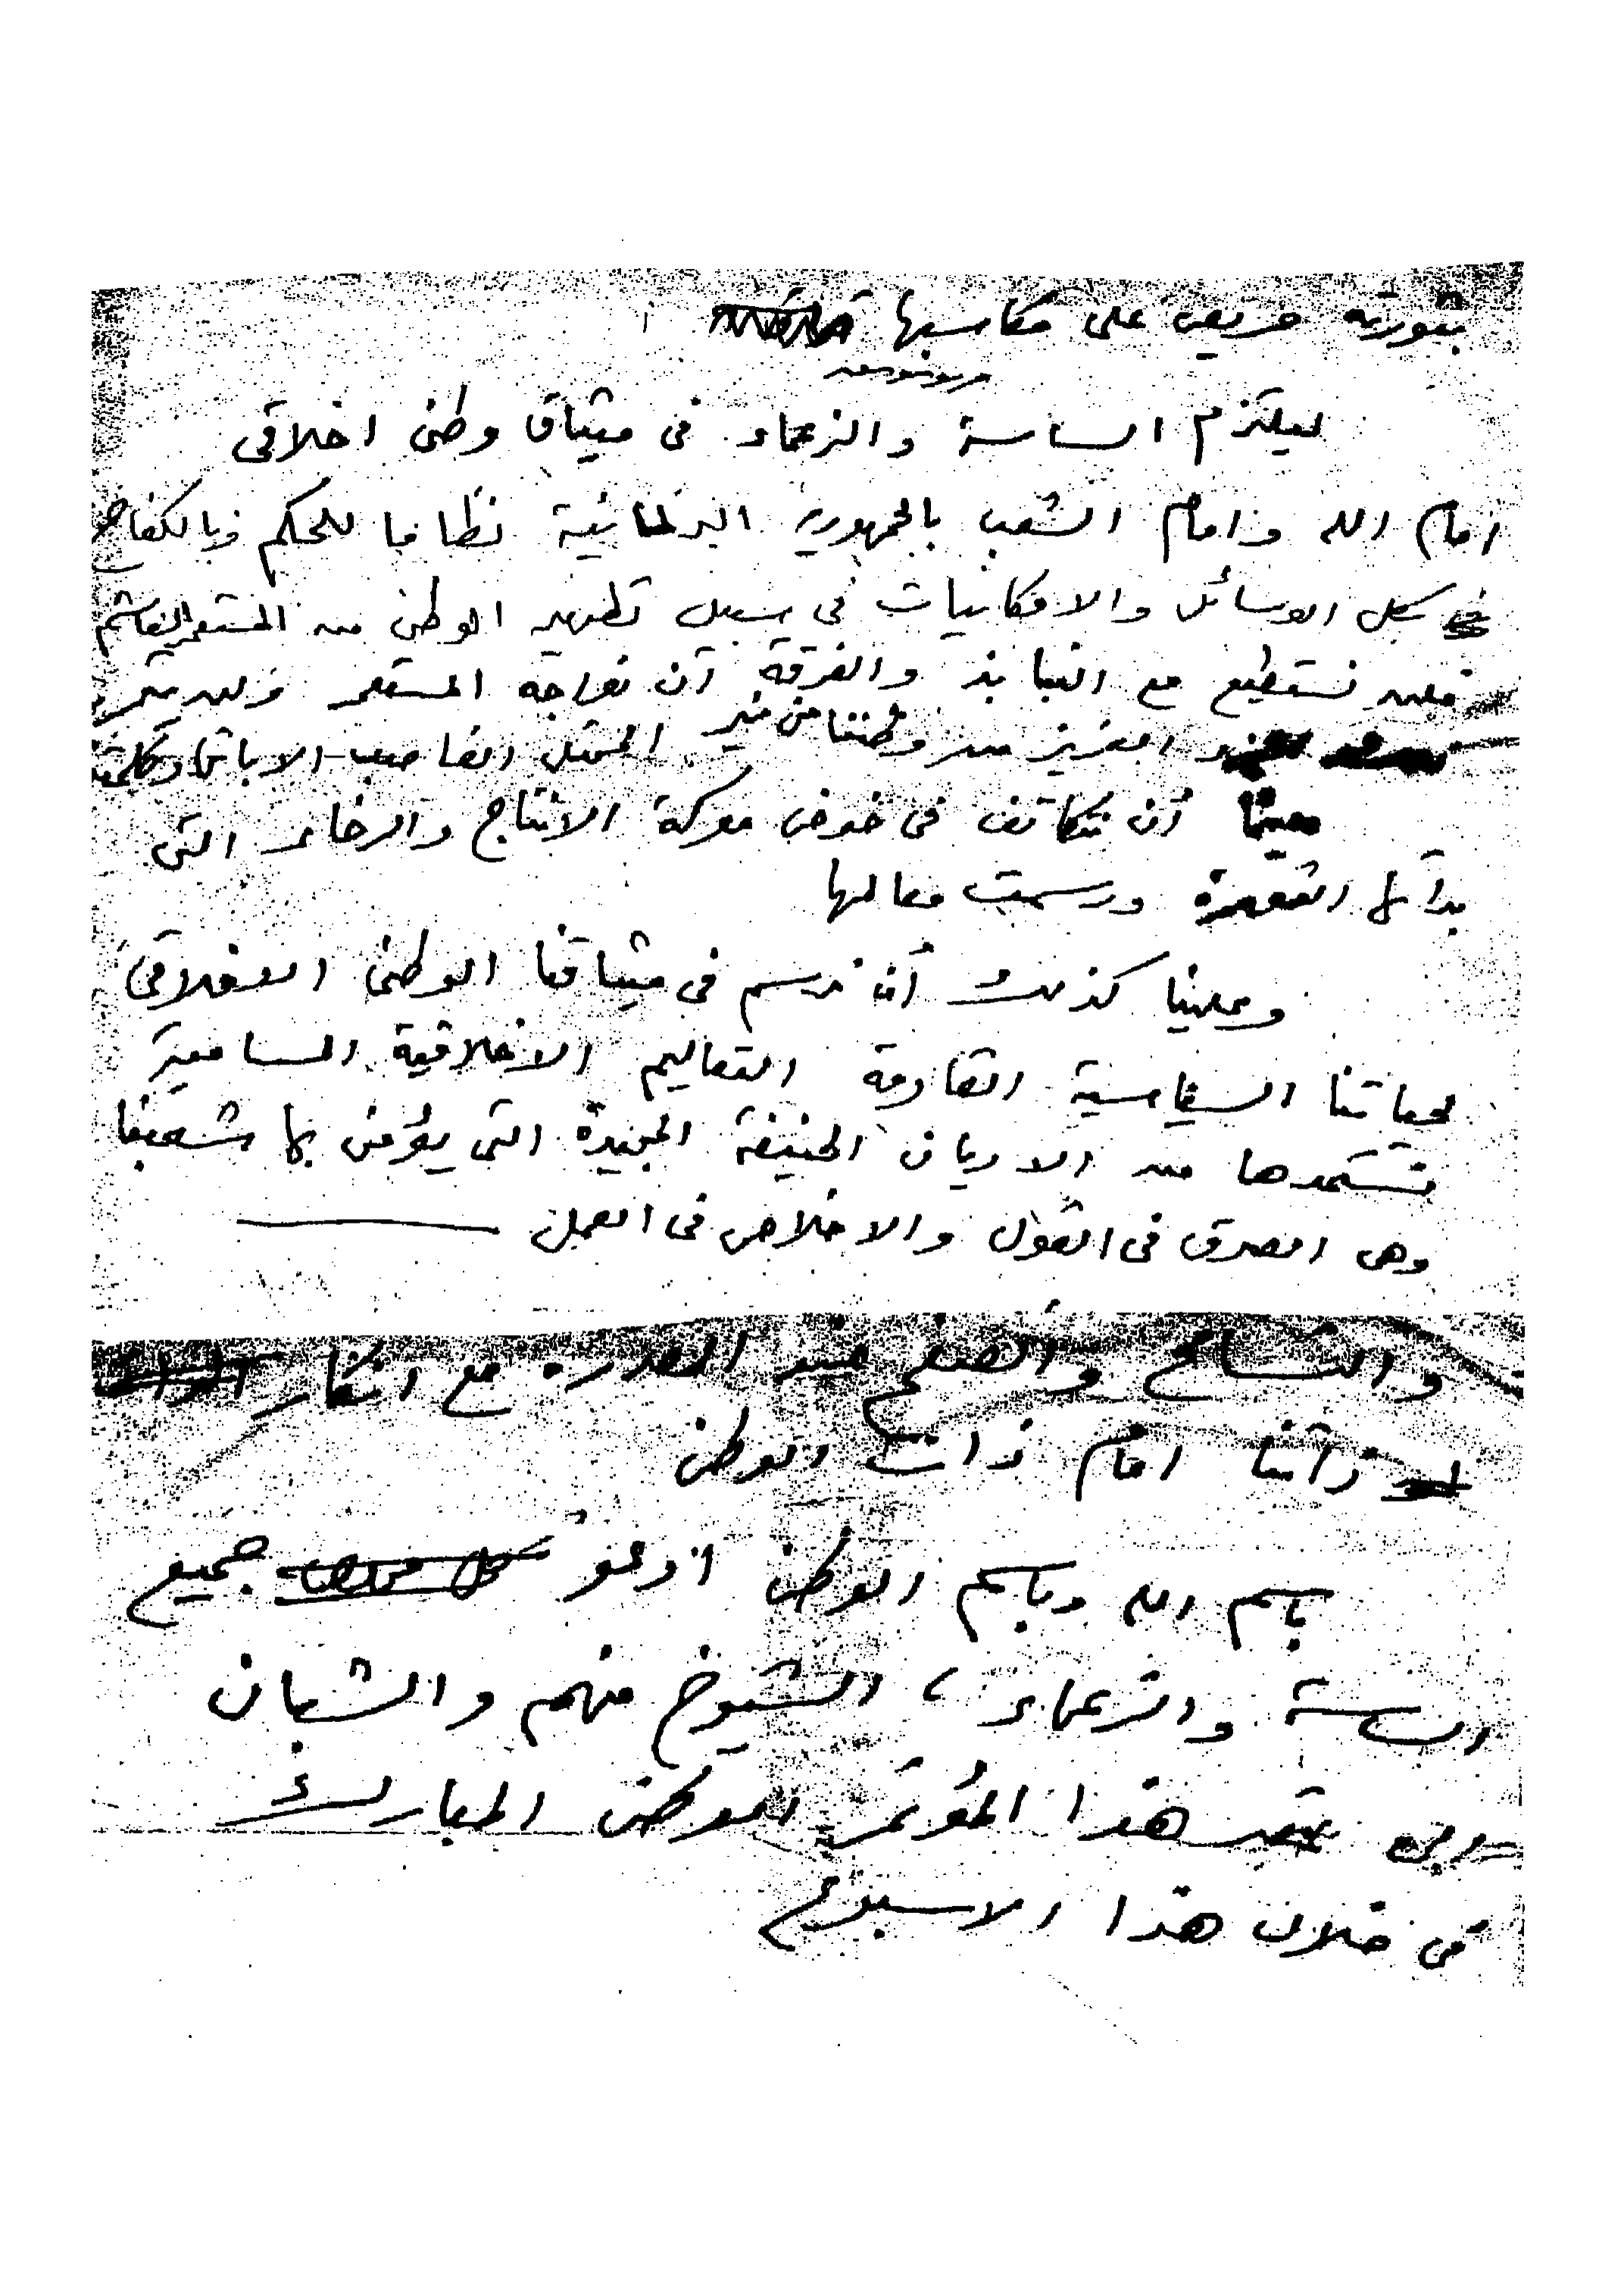 بثورته حريص على مكاسبها
ليلتزم الساسة والزعماء فى ميثاق وطنى اخلاقى
امام الله وامام الشعب بالجمهورية البرلمانية نظاما للحكم وبالكفاح
بكل الوسائل والامكانيات فى سبيل تطهير الوطن من المستعمر الغاشم
فلن نستطيع مع التنابذ والفرقة أن نواجه المستعمر ولن
العزيز من وطننا من نير المحتل الغاصب الا باتحاد كلمتنا
أن نتكاتف فى خوض معركة الانتاج والرخاء التى
بدأتها الثورة ورسمت معالمها
وعلينا كذلك أن نرسم فى ميثاقنا الوطنى الاخلاقى
لحياتنا السياسية القادمة التعاليم الاخلاقية السامية
نستمدها من الاديان الحنيفة المجيدة التى يؤمن بها شعبنا
وهى الصدق فى القول والاخلاص فى العمل
والتسامح والصفح عند المقدرة مع انكار
ذاتنا امام ذات الوطن
باسم الله وباسم الوطن أدعو جميع
الساسة والزعماء ، الشيوخ منهم والشبان
الى عقد هذا المؤتمر الوطنى المبارك
فى خلال هذا الاسبوع